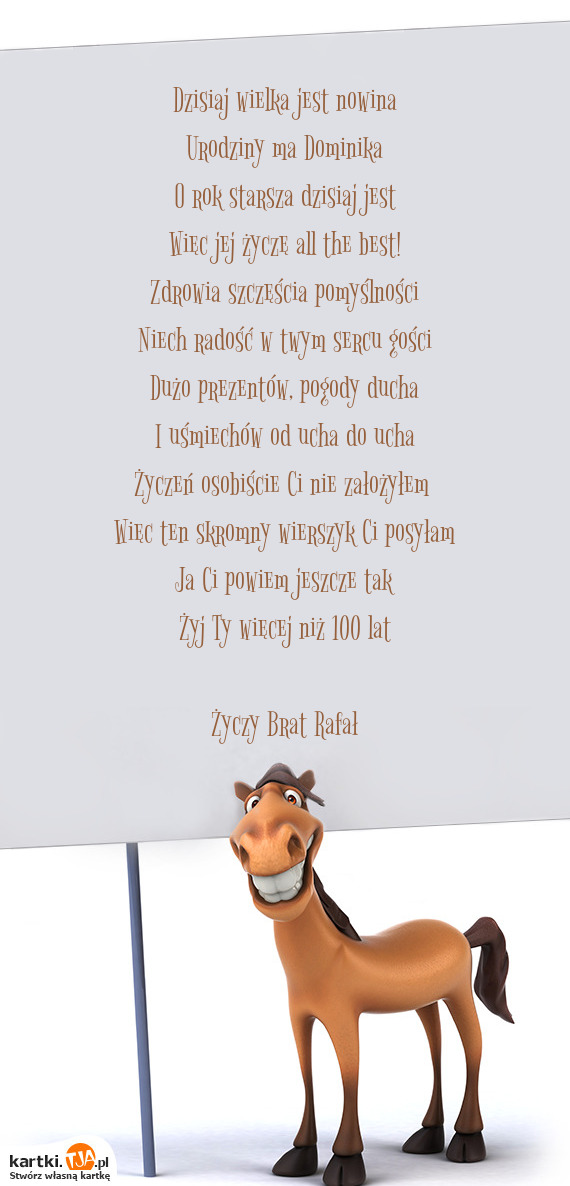 Dzisiaj wielka jest nowina
Urodziny ma Dominika
O rok starsza dzisiaj jest
Więc jej życzę all the best!
Zdrowia szczęścia pomyślności
Niech radość w twym sercu gości
Dużo prezentów, pogody ducha
I uśmiechów od ucha do ucha
Życzeń osobiście Ci nie założyłem
Więc ten skromny wierszyk Ci posyłam
Ja Ci powiem jeszcze tak
Żyj Ty więcej niż 100 lat
Życzy Brat Rafał
kartki.TJA.pl
Stwórz własną kartkę